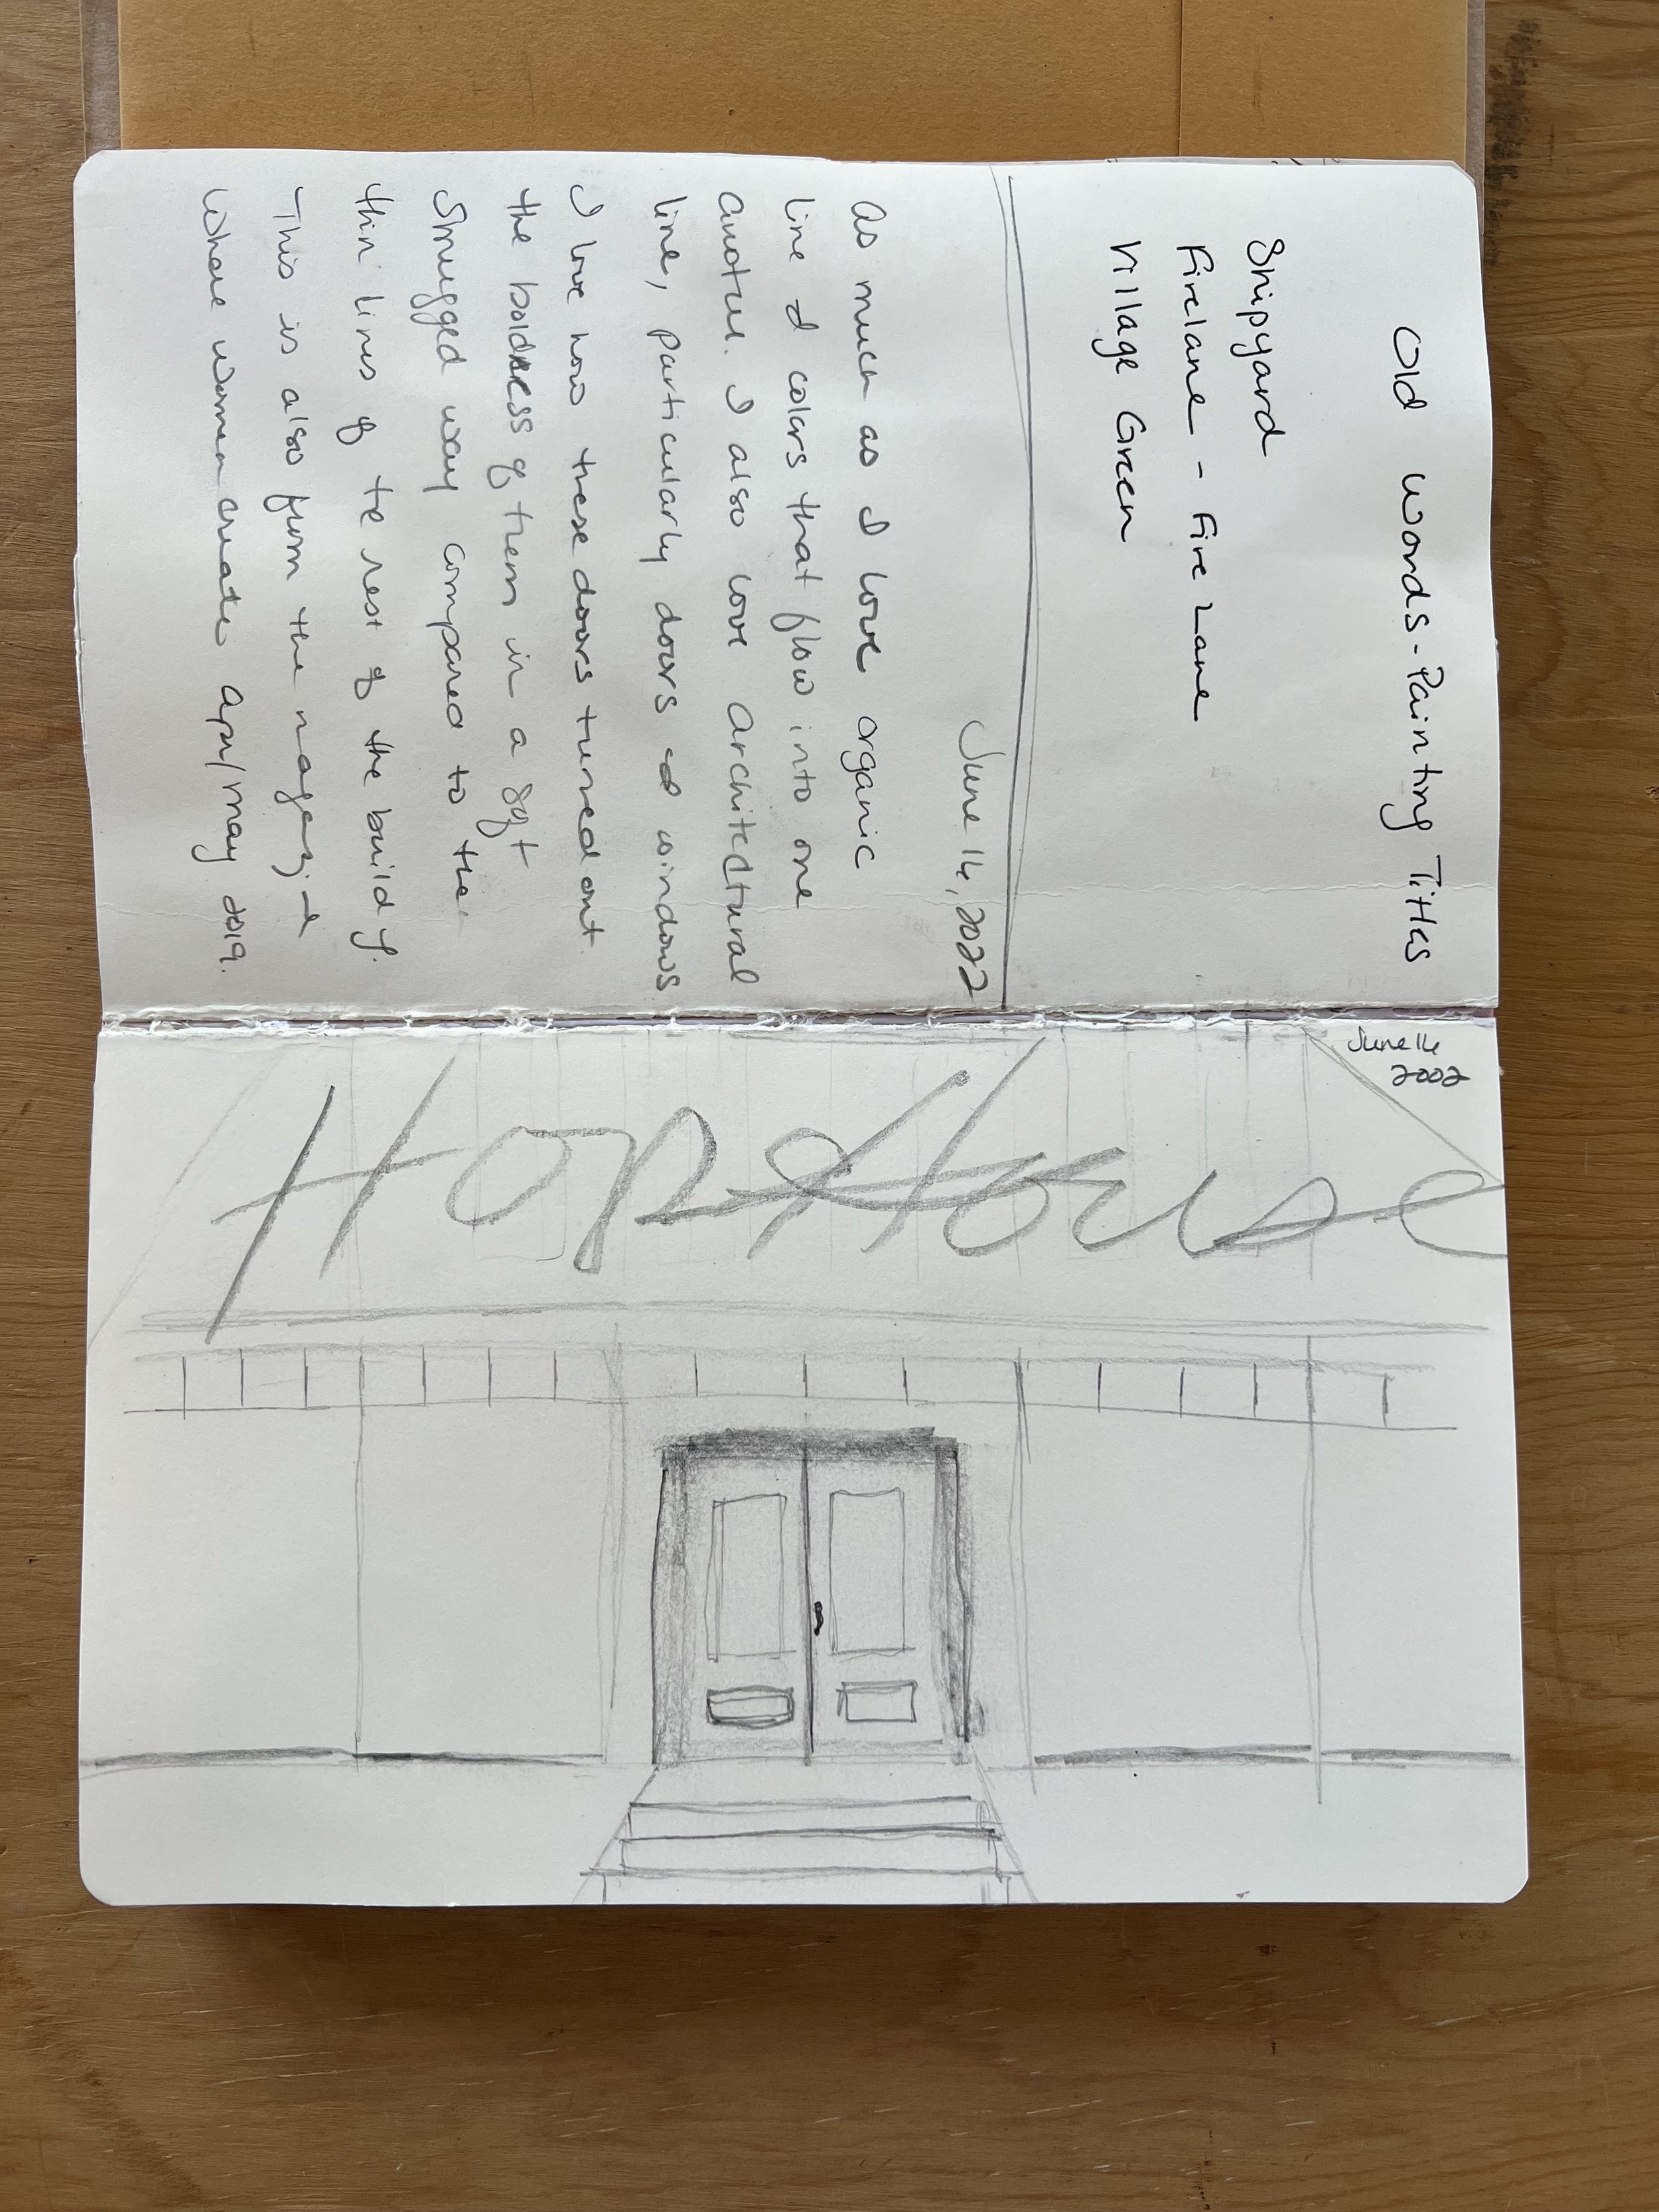 Old Words - Painting Titles
Shipyard
Firelane - Fire Lane
Village Green
June 14, 2022
As much as I love organic
line & colors that flow into one
another. I also love architectural
line, particularly doors & windows
I love how these doors turned out
the boldness of them in a soft
smugged way compared to the
thin lines of te rest of the buildg.
This is also from the magazine
Where women create Apr/May 2019.
June 14
2002
Hop House